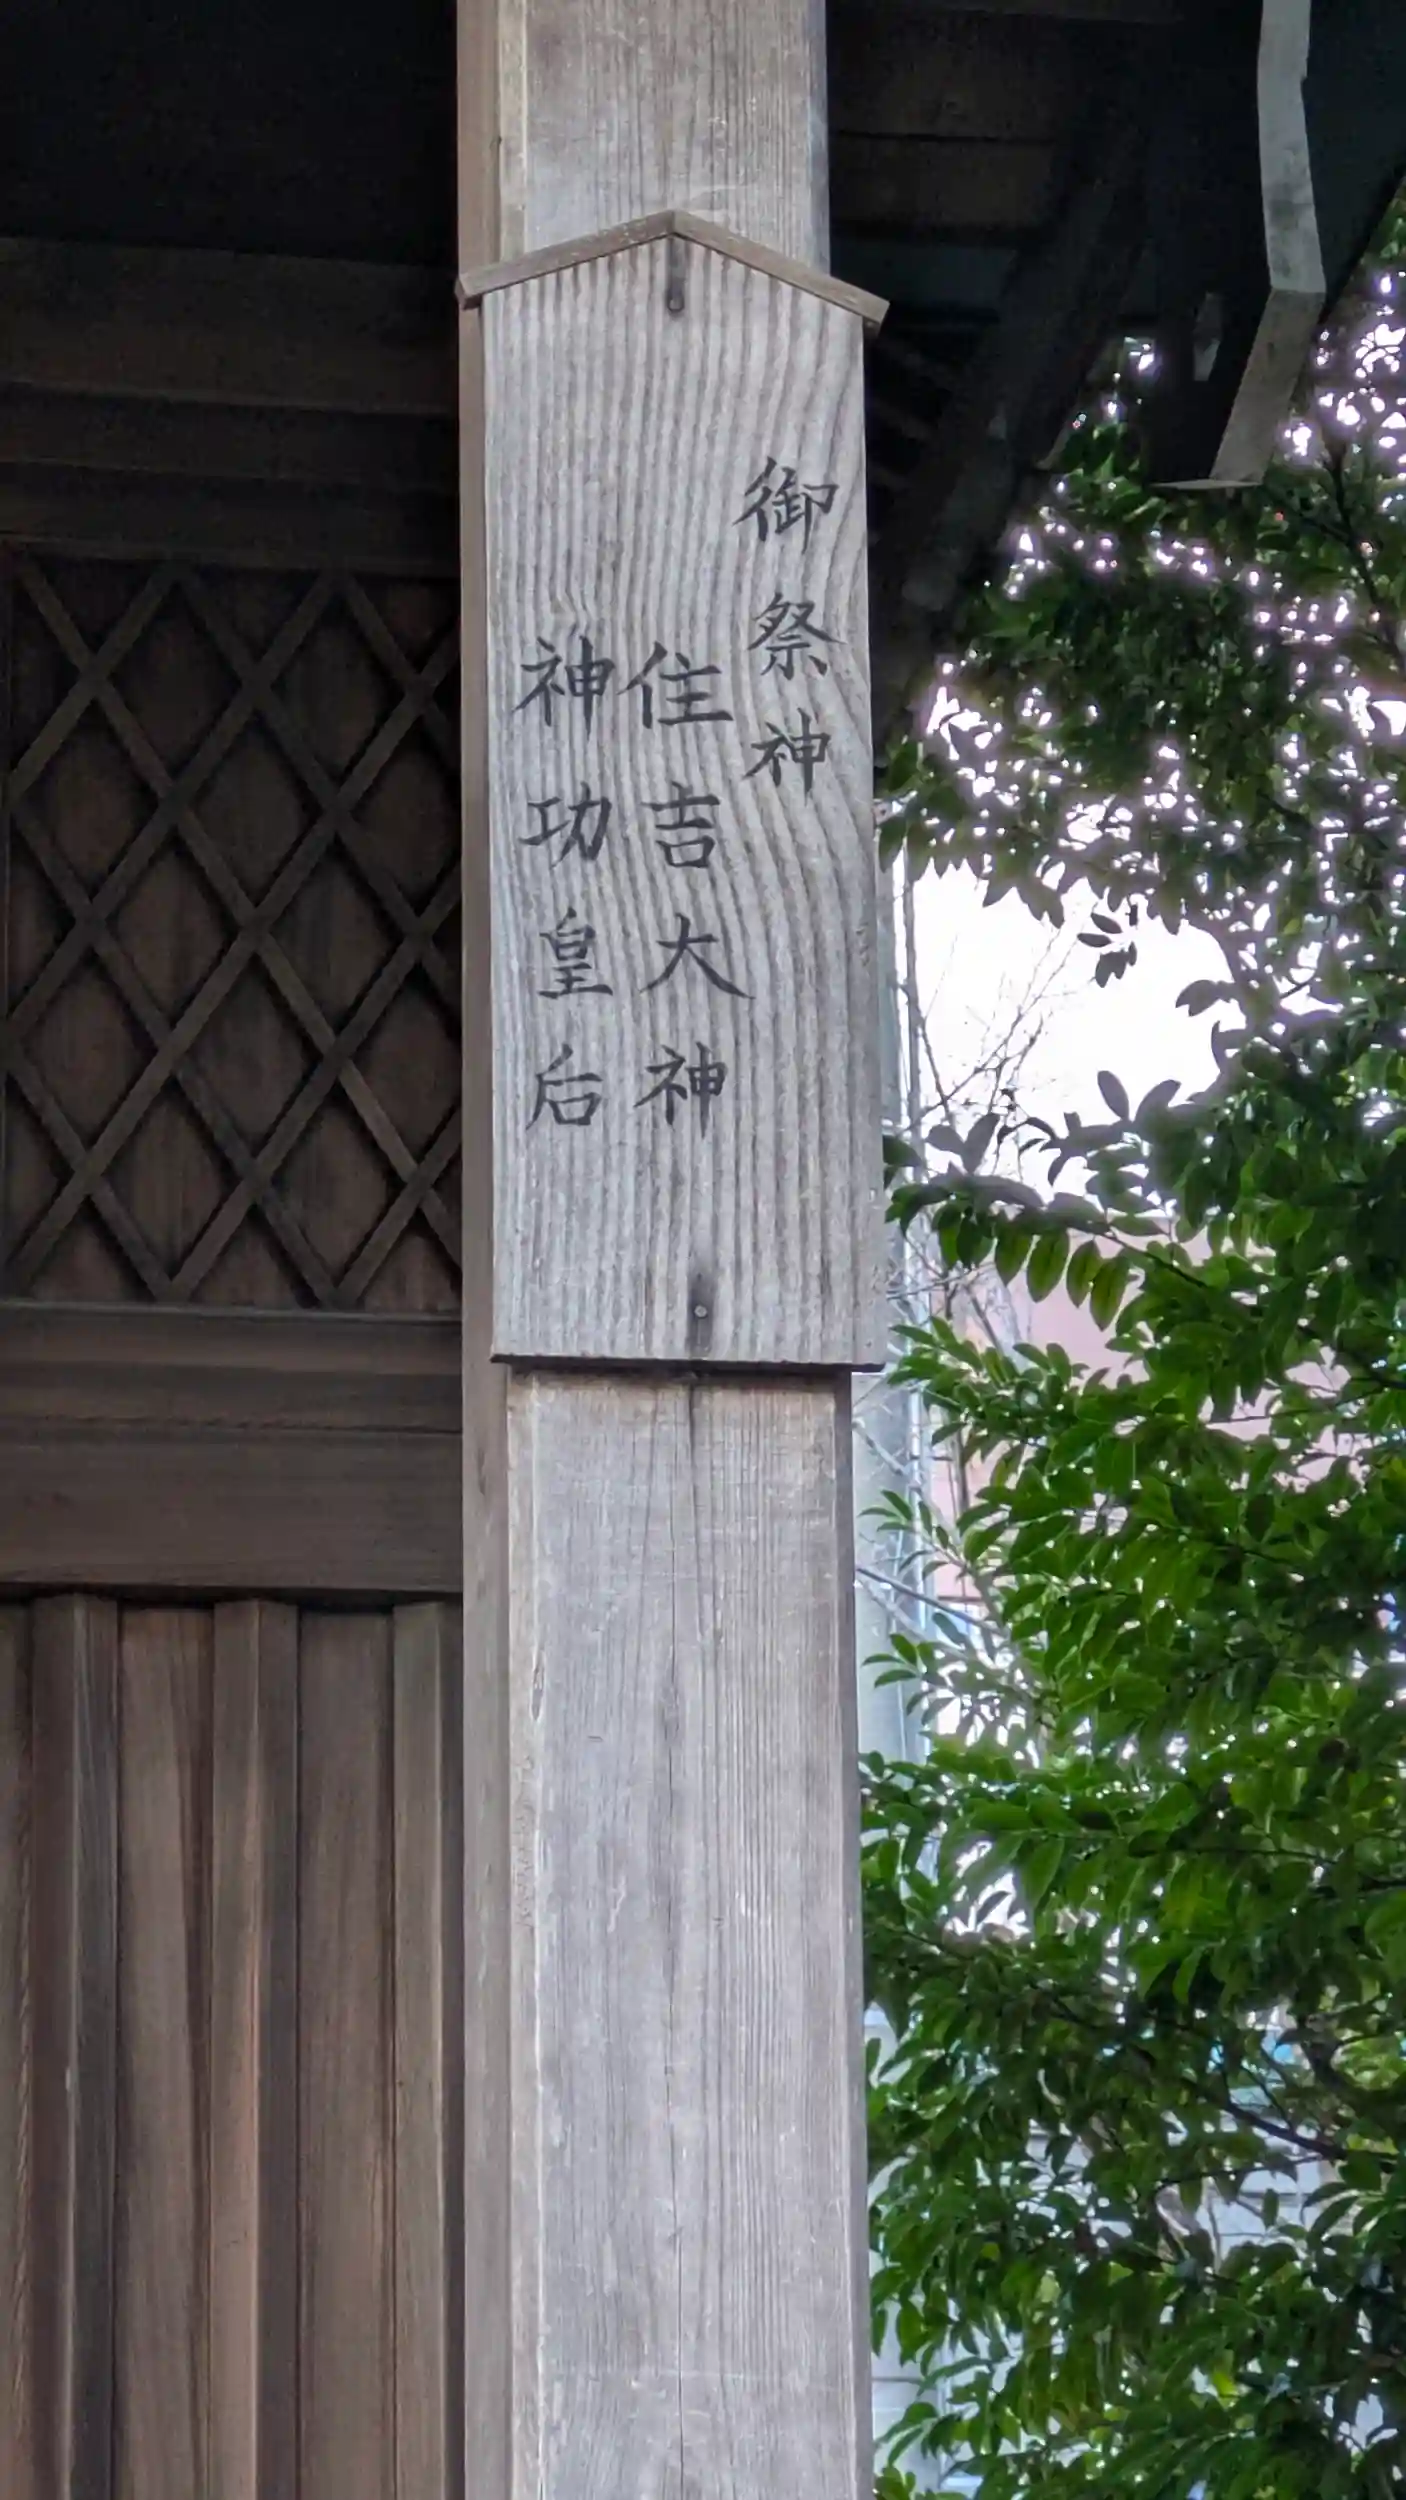 御祭神
住吉大神
神功皇后